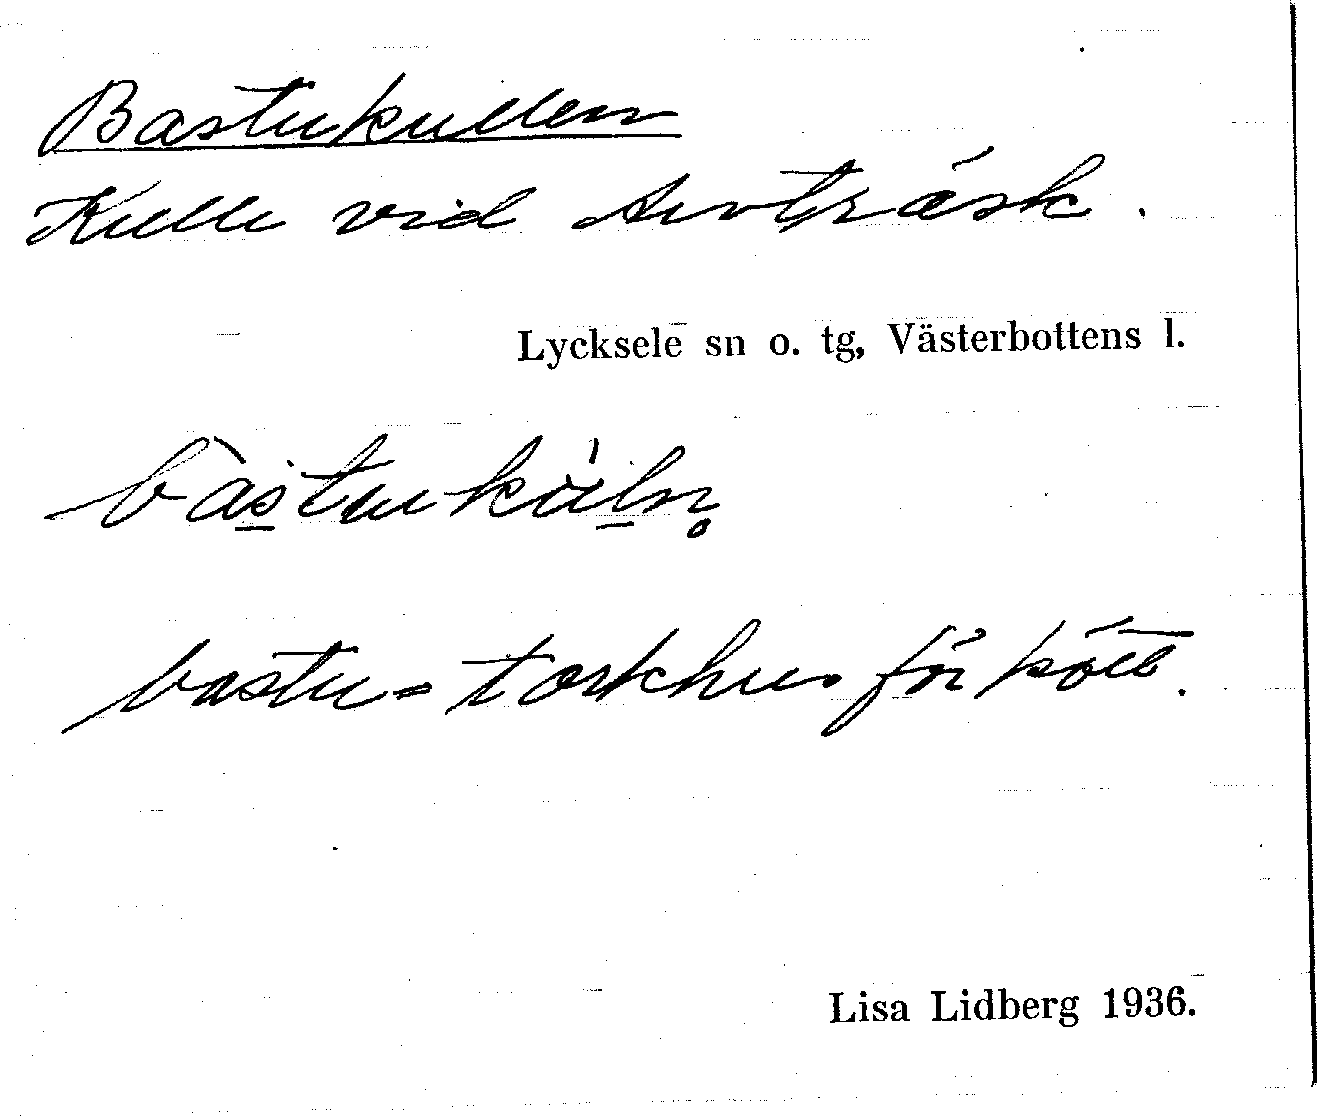 Bastukullen
Kulle vid Arvträsk.
Lycksele sn o. tg, Västerbottens l.
bastu = torkhus för kött.
Lisa Lidberg 1936.